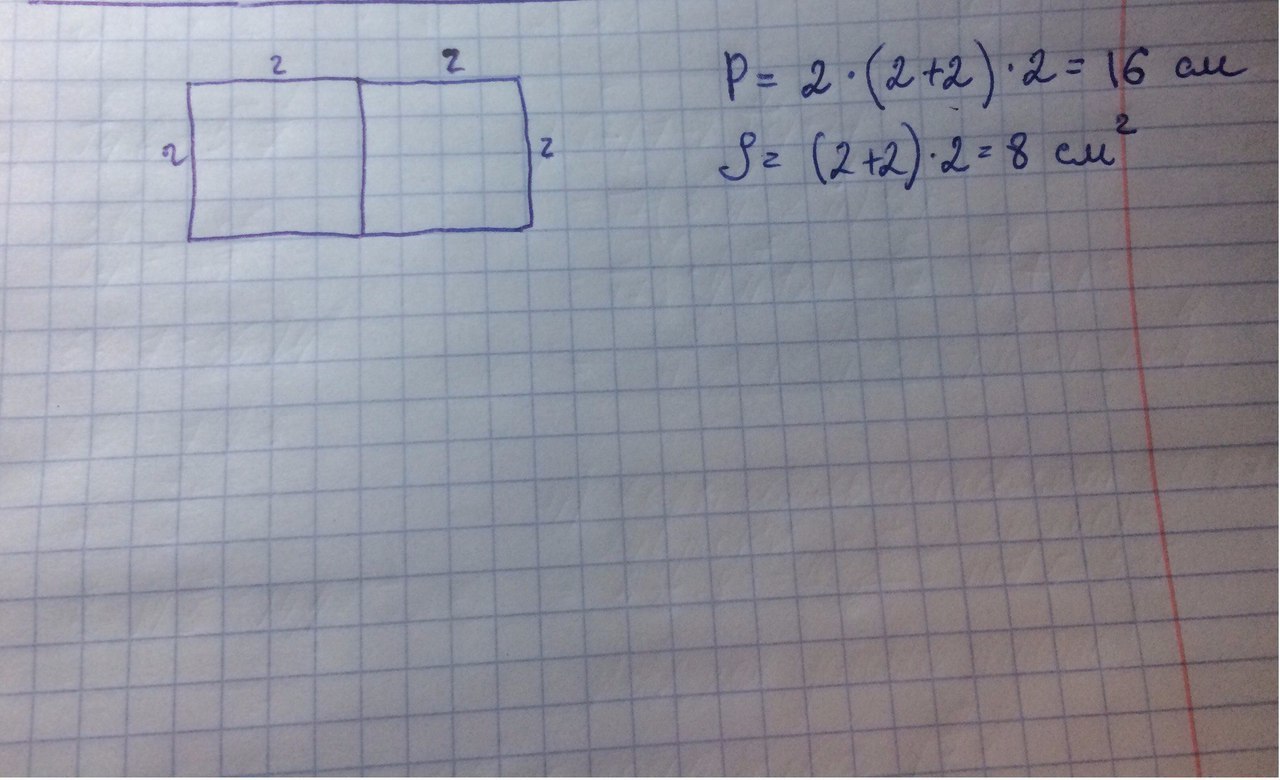 2 2
2 2
P = 2 · (2+2) · 2 = 16 см
S = (2+2) · 2 = 8 см²